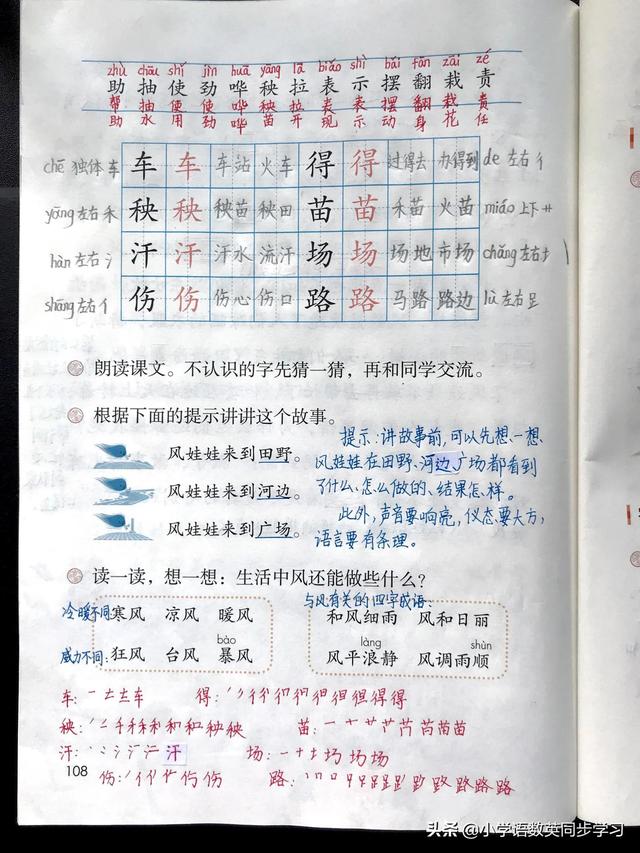 zhù chōu shǐ jìn huā yāng lā biǎo shì bǎi fān zāi zé
助 抽 使 劲 哗 秧 拉 表 示 摆 翻 栽 责
帮 抽 使 使 哗 秧 拉 表 表 摆 翻 栽 责
助 水 用 劲 哗 苗 开 现 示 动 身 花 任
chē 独体 车 车 车 车站 火车 得 得 过得去 办得到 de 左右 彳
yāng 左右 禾 秧 秧 秧苗 秧田 苗 苗 禾苗 火苗 miáo 上下 艹
hàn 左右 氵 汗 汗 汗水 流汗 场 场 场地 市场 chǎng 左右 土
shāng 左右 亻 伤 伤 伤心 伤口 路 路 马路 路边 lù 左右 足
朗读课文。不认识的字先猜一猜，再和同学交流。
根据下面的提示讲讲这个故事。
风娃娃来到田野。
风娃娃来到河边。
风娃娃来到广场。
提示：讲故事前，可以先想一想，
风娃娃在田野、河边、广场都看到
了什么、怎么做的、结果怎样。
此外，声音要响亮，仪态要大方，
语言要有条理。
读一读，想一想：生活中风还能做些什么？
冷暖不同：寒风 凉风 暖风
bào
威力不同：狂风 台风 暴风
与风有关的四字成语：
和风细雨 风和日丽
làng shùn
风平浪静 风调雨顺
车： 车 得： 得
秧： 秧 苗： 苗
汗： 汗 场： 场
伤： 伤 路： 路
108
头条 @小学语数英同步学习